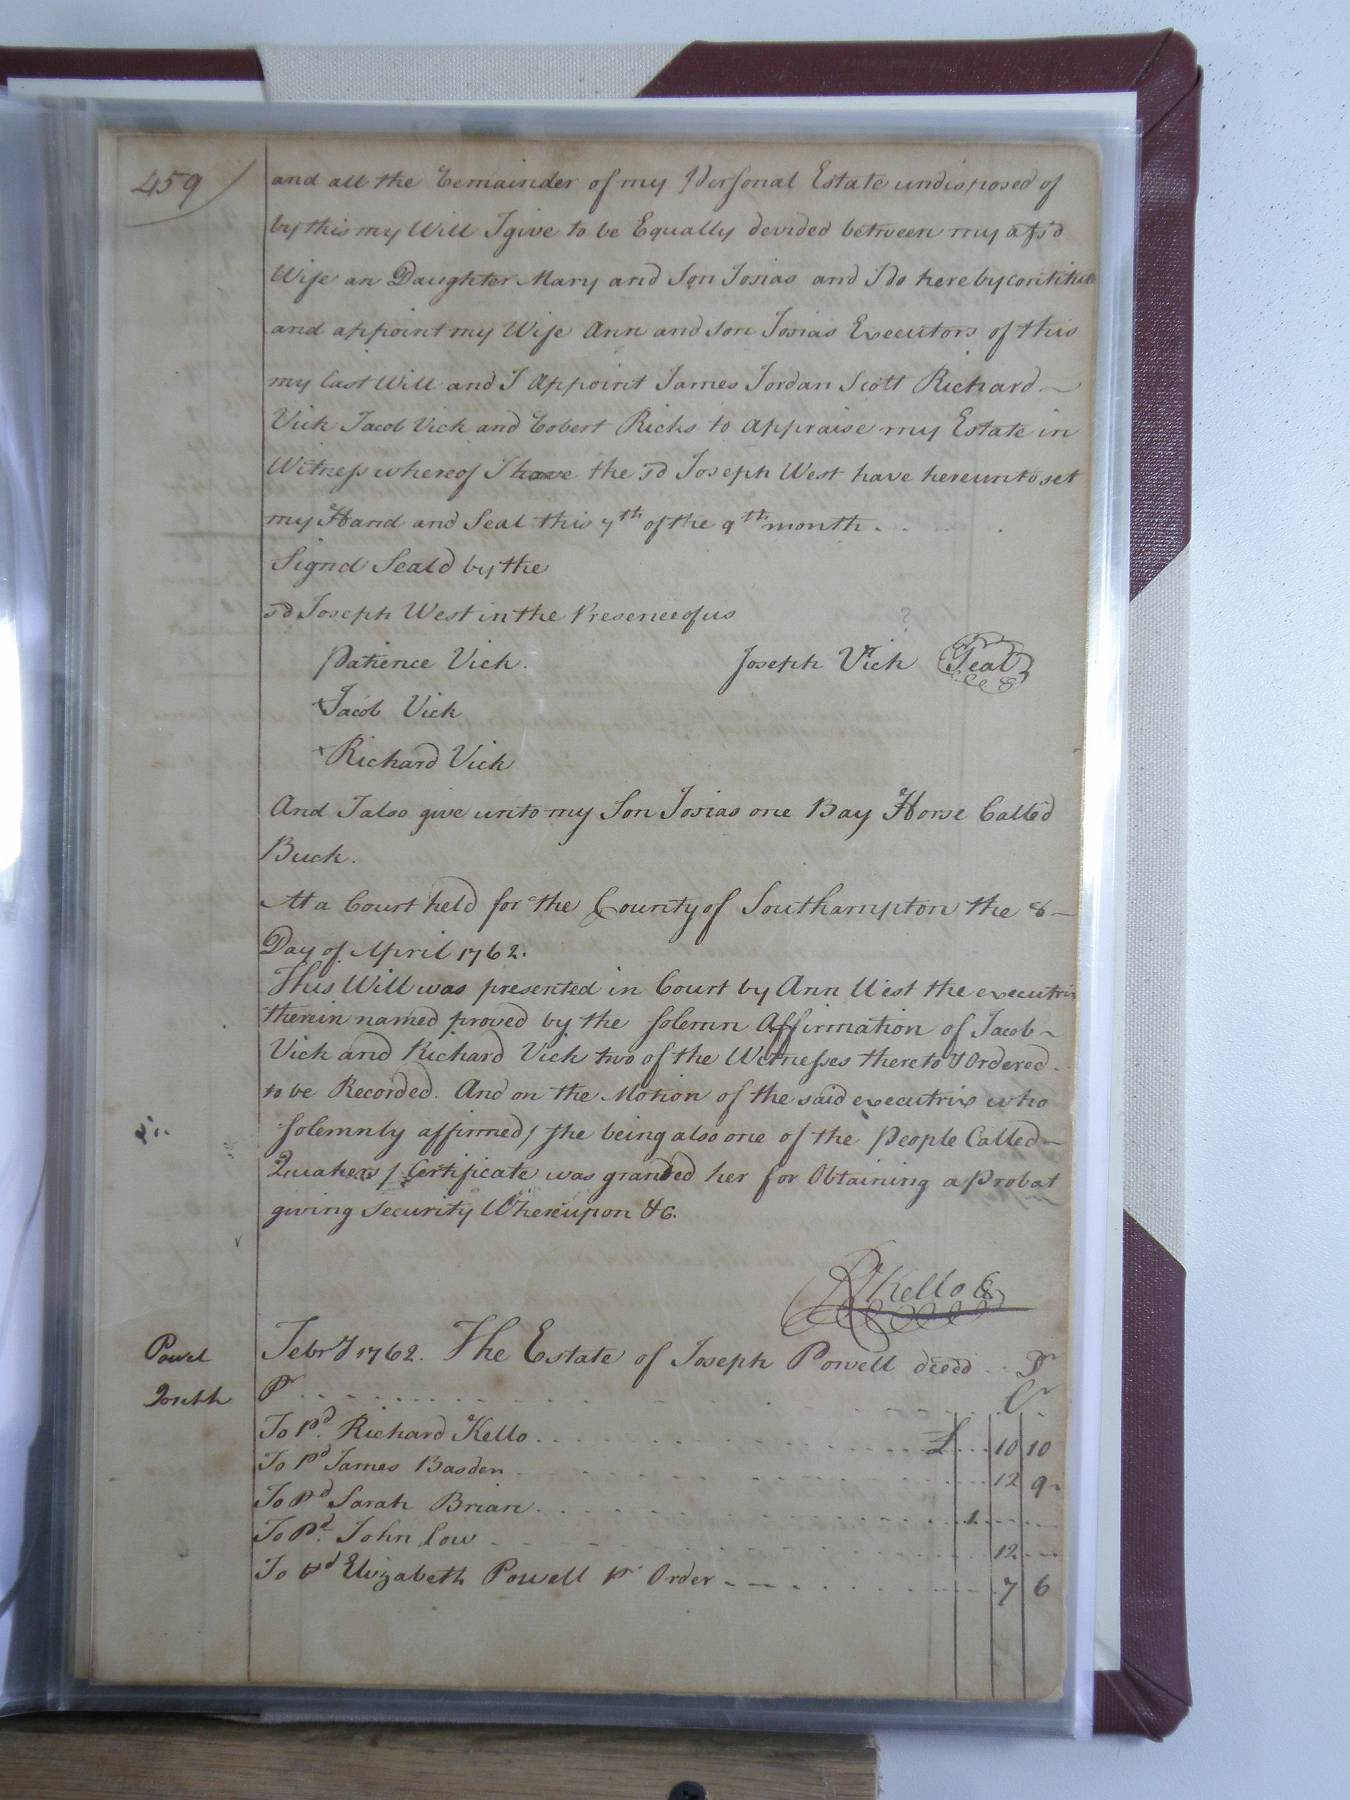 459
and all the Remainder of my Personal Estate undisposed of
by this my Will I give to be Equally devided between my afsd
Wife an Daughter Mary and Son Josias and I do hereby contitute
and appoint my Wife Ann and son Josias Executors of this
my last Will and I Appoint James Jordan Scott Richard
Vick Jacob Vick and Robert Ricks to appraise my Estate in
Witness whereof I have the sd Joseph West have hereunto set
my Hand and Seal this 7th of the 9th month.
Signd Seald by the
sd Joseph West in the Presence of us ?
Patience Vick. Joseph Vick Seal
Jacob Vick
Richard Vick
And I also give unto my Son Josias one Bay Horse Called
Buck.
At a Court held for the County of Southampton the 8
Day of April 1762.
This Will was presented in Court by Ann West the executrix
therein named proved by the solemn Affirmation of Jacob
Vick and Richard Vick two of the Witnesses thereto & Ordered
to be Recorded. And on the Motion of the said executrix who
solemnly affirmed / she being also one of the People Called
Quakers / Certificate was granted her for Obtaining a Probat
giving Security Whereupon &c.
R Kello
Powel Febry 1762. The Estate of Joseph Powell deced .. Dr
Joseph Pr Cr
To Pd. Richard Kello £ 10 10
To Pd James Basden 12 9
To Pd Sarah Brian 1
To Pd. John Low 12
To Pd Elizabeth Powell Pr Order 7 6